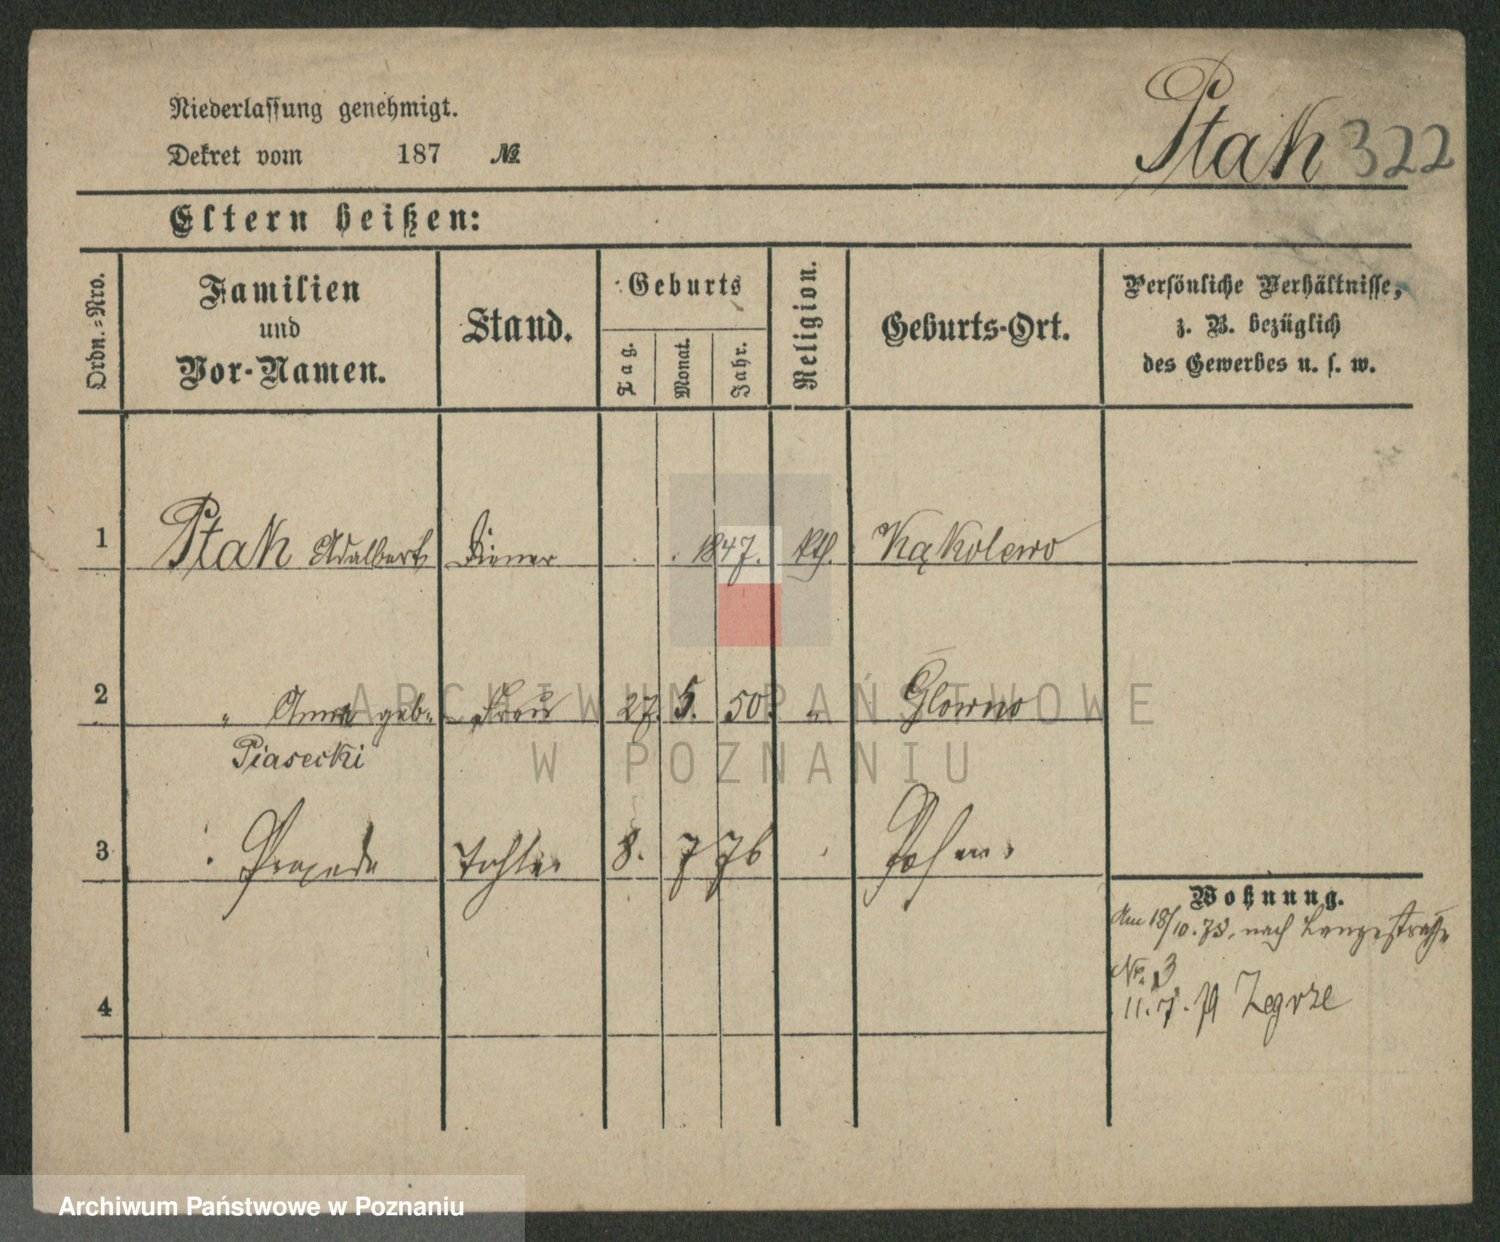 Niederlassung genehmigt.
Dekret vom 187 №
Ptak 322
Eltern heißen:
Ordn.-Nro.
Familien und Vor-Namen.
Stand.
Geburts
Tag.
Monat.
Jahr.
Religion.
Geburts-Ort.
Persönliche Verhältnisse,
z. B. bezüglich
des Gewerbes u. s. w.
1 Ptak Adalbert Diener . . 1847. kth. Kąkolewo
2 " Anna geb. Frau 27. 5. 50. " Glowno
Piasecki
3 " Praxeda Tochter 8. 7 76 " Posen
Wohnung.
Am 18/10. 78. nach Langestraße
No. 3
11. 7. Zegrze
4
ARCHIWUM PAŃSTWOWE
W POZNANIU
Archiwum Państwowe w Poznaniu